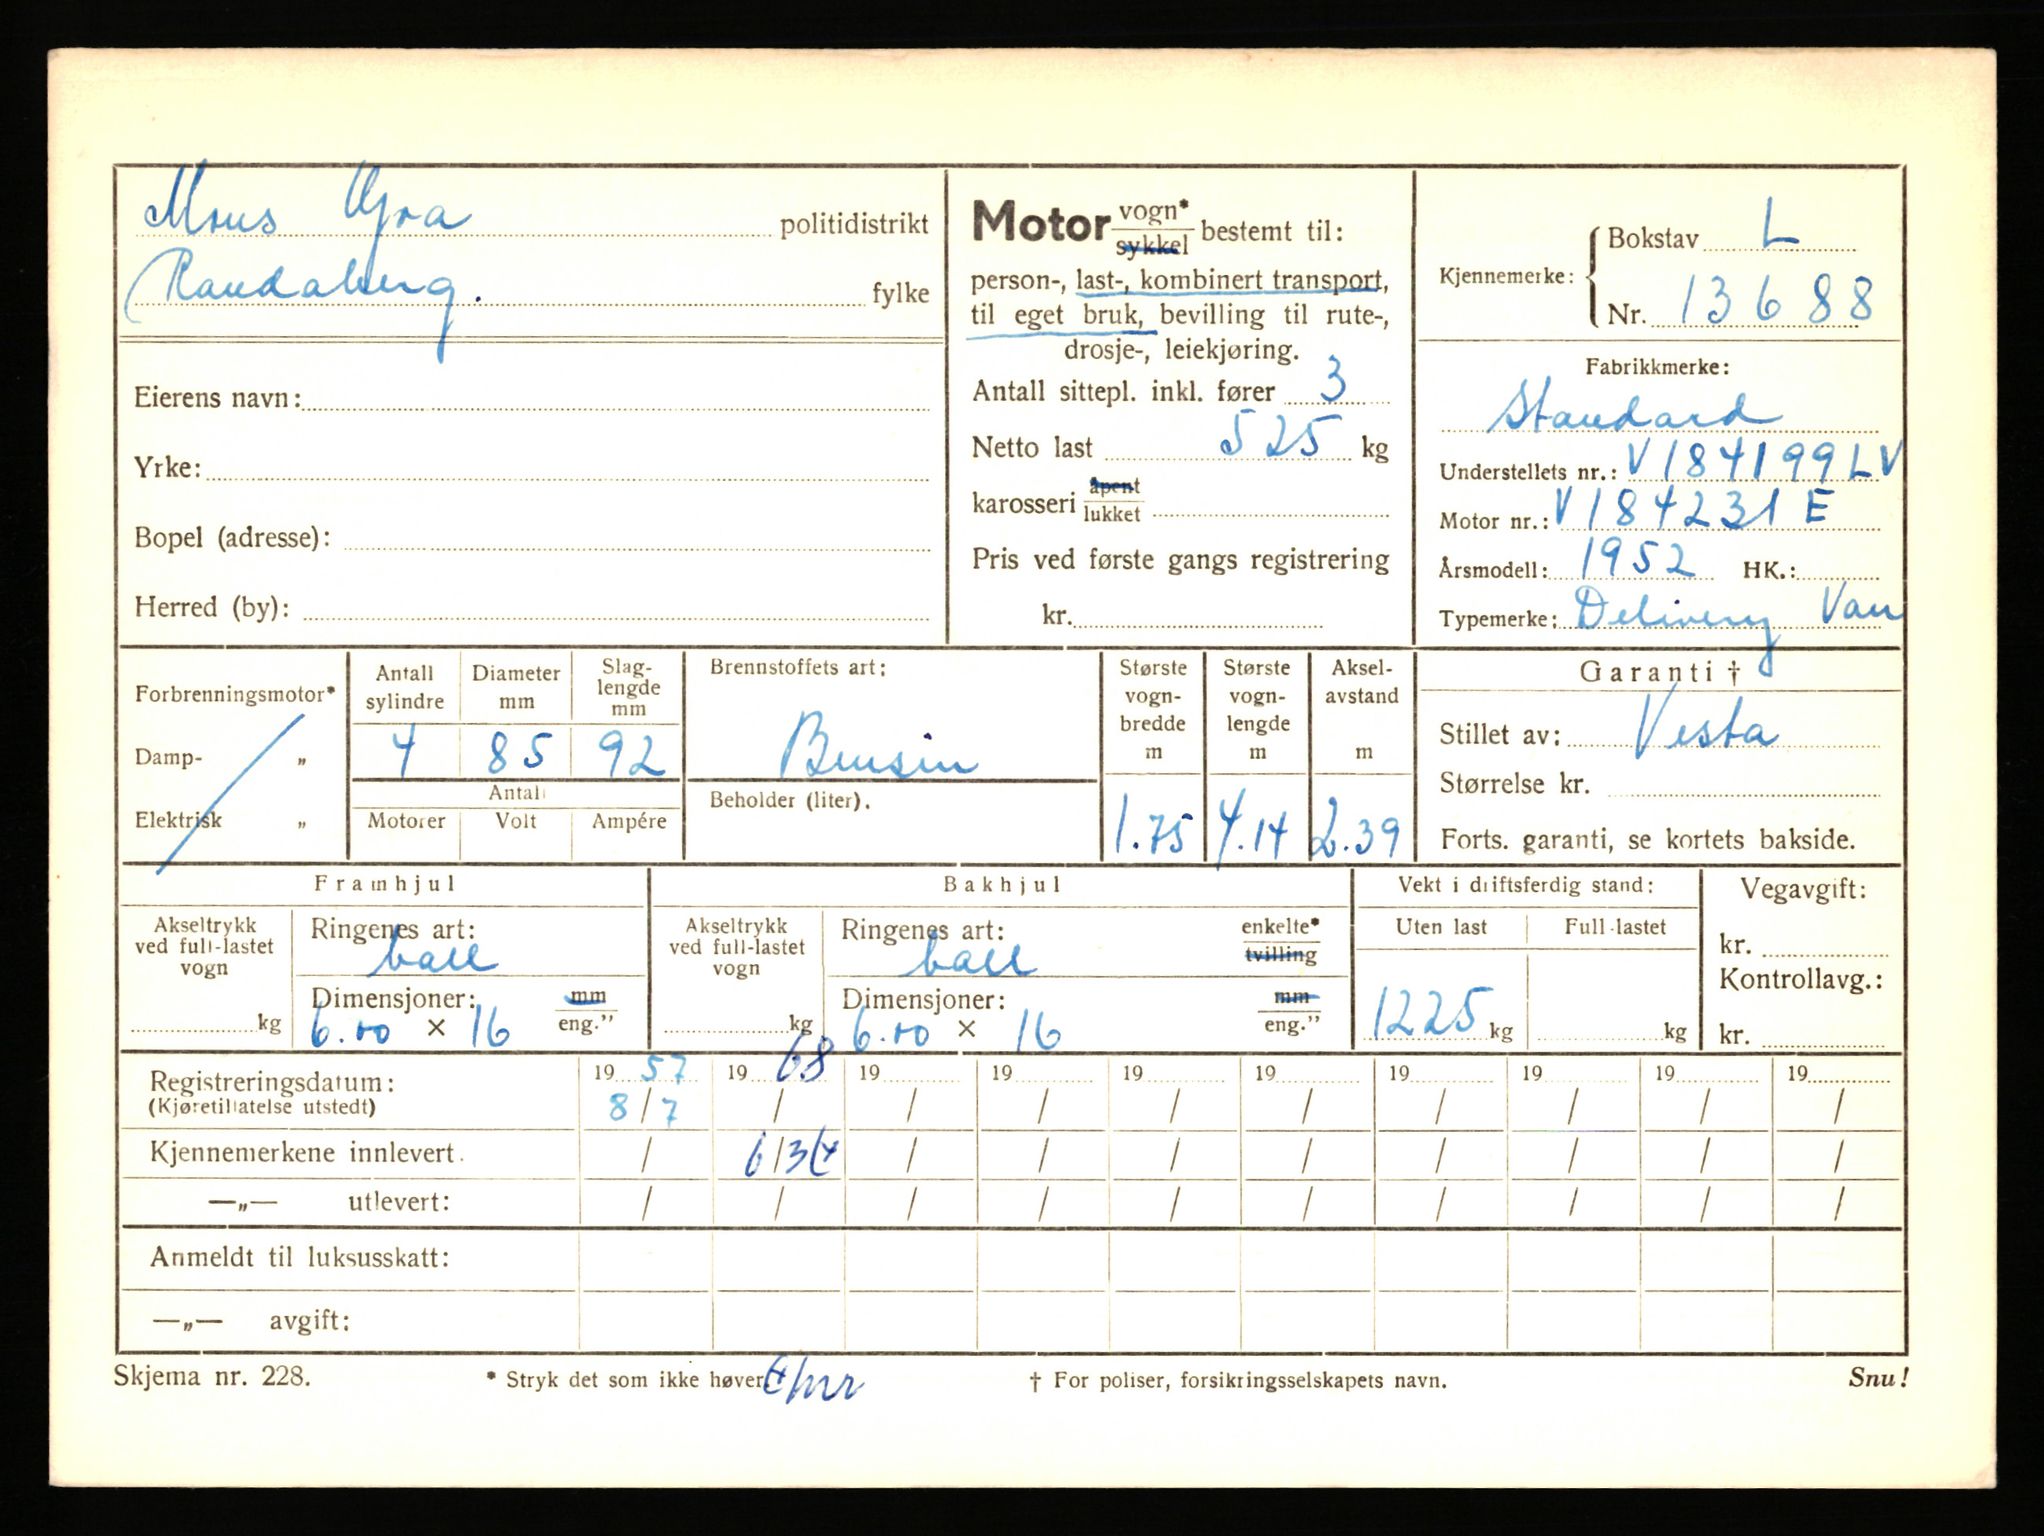 Mons Gjra politidistrikt
Randaberg. fylke
Eierens navn:
Yrke:
Bopel (adresse):
Herred (by):
Motor vogn* sykkel bestemt til:
person-, last-, kombinert transport,
til eget bruk, bevilling til rute-,
drosje-, leiekjøring.
Antall sittepl. inkl. fører 3
Netto last 525 kg
karosseri åpent lukket
Pris ved første gangs registrering
kr.
Kjennemerke: Bokstav L
Nr. 13688
Fabrikkmerke:
Standard
Understellets nr.: V184199LV
Motor nr.: V184231E
Årsmodell: 1952 HK.:
Typemerke: Delivery Van
Forbrenningsmotor*
Damp- „
Elektrisk „
Antall sylindre
Diameter mm
Slag-
lengde
mm
4 85 92
Antall
Motorer Volt Ampére
Brennstoffets art:
Bensin
Beholder (liter).
Største
vogn-
bredde
m
1.75
Største
vogn-
lengde
m
4.14
Aksel-
avstand
m
2.39
Garanti †
Stillet av: Vesta
Størrelse kr.
Forts. garanti, se kortets bakside.
Framhjul
Akseltrykk
ved full-lastet
vogn
kg
Ringenes art:
ball
Dimensjoner: mm
6.00 × 16 eng."
Bakhjul
Akseltrykk
ved full-lastet
vogn
kg
Ringenes art: enkelte*
ball tvilling
Dimensjoner: mm
6.00 × 16 eng."
Vekt i driftsferdig stand:
Uten last Full-lastet
1225 kg kg
Vegavgift:
kr.
Kontrollavg.:
kr.
Registreringsdatum: 19 57 19 68 19 19 19 19 19 19 19 19
(Kjøretillatelse utstedt) 8/7 / / / / / / / / /
Kjennemerkene innlevert. / 6/3 / / / / / / / /
—„— utlevert: / / / / / / / / / /
Anmeldt til luksusskatt:
—„— avgift:
Skjema nr. 228. * Stryk det som ikke høver. † For poliser, forsikringsselskapets navn. Snu!